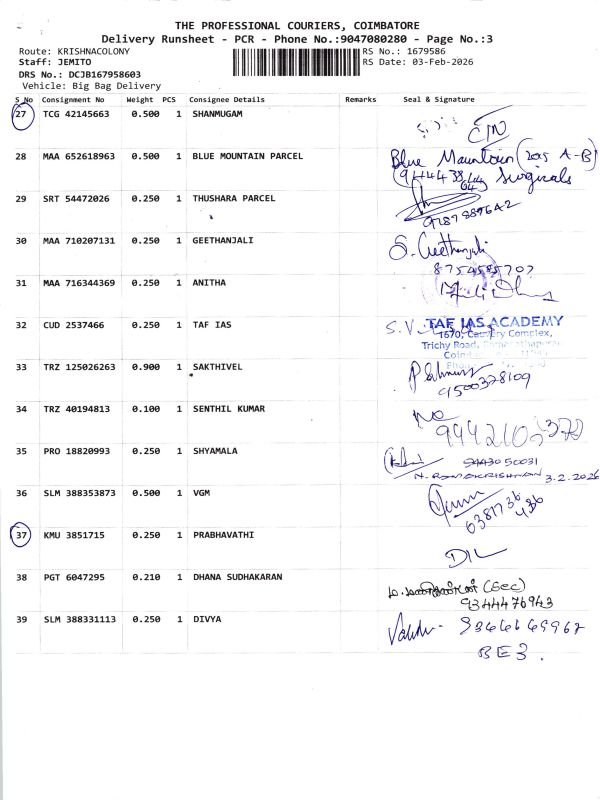 THE PROFESSIONAL COURIERS, COIMBATORE
Delivery Runsheet - PCR - Phone No.:9047080280 - Page No.:3
Route: KRISHNACOLONY
RS No.: 1679586
Staff: JEMITO
RS Date: 03-Feb-2026
DRS No.: DCJB167958603
Vehicle: Big Bag Delivery
S No Consignment No Weight PCS Consignee Details Remarks Seal & Signature
27 TCG 42145663 0.500 1 SHANMUGAM
28 MAA 652618963 0.500 1 BLUE MOUNTAIN PARCEL Blue Mauntain (205 A-B)
Surgicals
29 SRT 54472026 0.250 1 THUSHARA PARCEL
30 MAA 710207131 0.250 1 GEETHANJALI S. Geethanjali
8754585707
31 MAA 716344369 0.250 1 ANITHA
32 CUD 2537466 0.250 1 TAF IAS S.V TAF IAS ACADEMY
1670, Cauvery Complex,
Trichy Road,
33 TRZ 125026263 0.900 1 SAKTHIVEL
9500328109
34 TRZ 40194813 0.100 1 SENTHIL KUMAR
35 PRO 18820993 0.250 1 SHYAMALA 9443050031
N. RAMAKRISHNAN 3.2.2026
36 SLM 388353873 0.500 1 VGM
6381736
436
37 KMU 3851715 0.250 1 PRABHAVATHI
38 PGT 6047295 0.210 1 DHANA SUDHAKARAN (Sec)
9344476943
39 SLM 388331113 0.250 1 DIVYA
BE3.